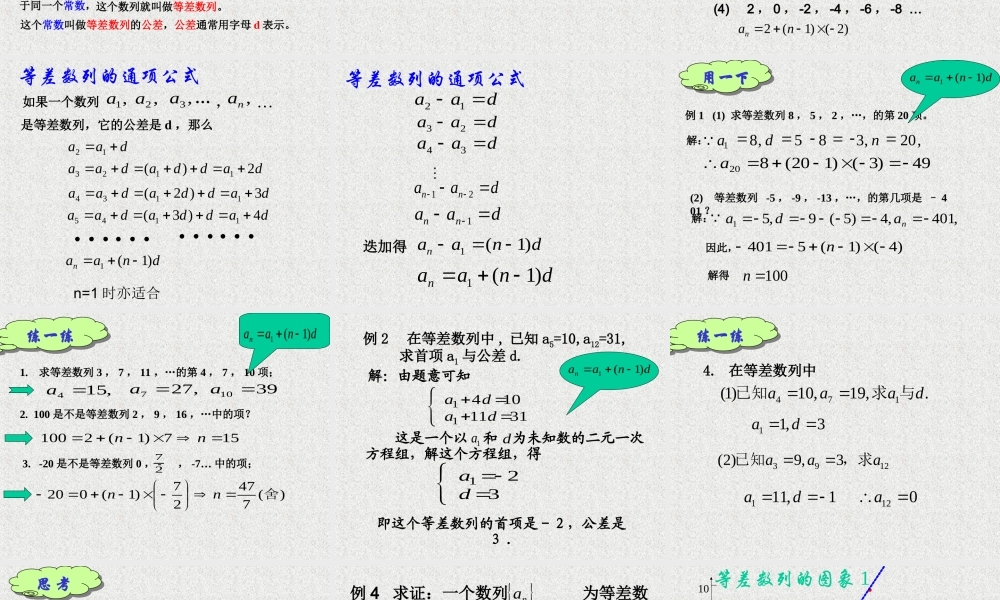 于同一个常数，这个数列就叫做等差数列。
这个常数叫做等差数列的公差，公差通常用字母 d 表示。
(4) 2 ， 0 ， -2 ， -4 ， -6 ， -8 …
aₙ 2 (n 1) ( 2)
等差数列的通项公式
如果一个数列 a₁, a₂, a₃,…，aₙ, …
是等差数列，它的公差是 d ，那么
a₂ a₁ d
a₃ a₂ d (a₁ d) d a₁ 2d
a₄ a₃ d (a₁ 2d) d a₁ 3d
a₅ a₄ d (a₁ 3d) d a₁ 4d
• • • • • • • • • • • •
aₙ a₁ (n 1)d
n=1 时亦适合
等差数列的通项公式
a₂ a₁ d
a₃ a₂ d
a₄ a₃ d
⋮
aₙ ₁ aₙ ₂ d
aₙ aₙ ₁ d
迭加得 aₙ a₁ (n 1)d
aₙ a₁ (n 1)d
用一下
aₙ a₁ (n 1)d
例 1 (1) 求等差数列 8 ， 5 ， 2 ，…，的第 20 项。
解: ∵ a₁ 8, d 5 8 3, n 20,
∴ a₂₀ 8 (20 1) ( 3) 49
(2) 等差数列 -5 ， -9 ， -13 ，…，的第几项是 – 4
01 ?
解: ∵ a₁ 5, d 9 ( 5) 4, aₙ 401,
因此， 401 5 (n 1) ( 4)
解得 n 100
练一练
aₙ a₁ (n 1)d
1. 求等差数列 3 ， 7 ， 11 ，…的第 4 ， 7 ， 10 项；
a₄ 15, a₇ 27, a₁₀ 39
2. 100 是不是等差数列 2 ， 9 ， 16 ，…中的项?
100 2 (n 1) 7 ⇒ n 15
3. -20 是不是等差数列 0 ， 7/2 ， -7… 中的项；
20 0 (n 1) (7/2) ⇒ n 47/7 (舍)
例 2 在等差数列中 ，已知 a₅=10, a₁₂=31,
求首项 a₁ 与公差 d.
aₙ a₁ (n 1)d
解：由题意可知
a₁ 4d 10
a₁ 11d 31
这是一个以 a₁ 和 d 为未知数的二元一次
方程组，解这个方程组，得
a₁ 2
d 3
即这个等差数列的首项是 – 2 ，公差是
3 .
练一练
4. 在等差数列中
(1)已知a₄ 10, a₇ 19, 求a₁与d.
a₁ 1, d 3
(2)已知a₃ 9, a₉ 3，求a₁₂
a₁ 11, d 1 ∴ a₁₂ 0
思 考
例 4 求证：一个数列 aₙ 为等差数
等差数列的图象 1
10